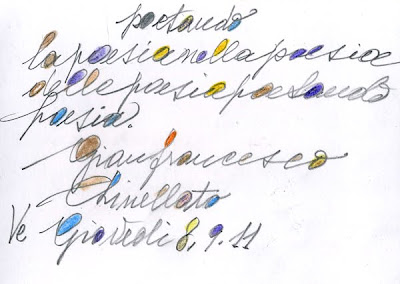 poetando
la poesia nella poesia
delle poesia poetando
poesia.
Gianfrancesco
Chinellato
Ve Giovedì 8, 9. 11